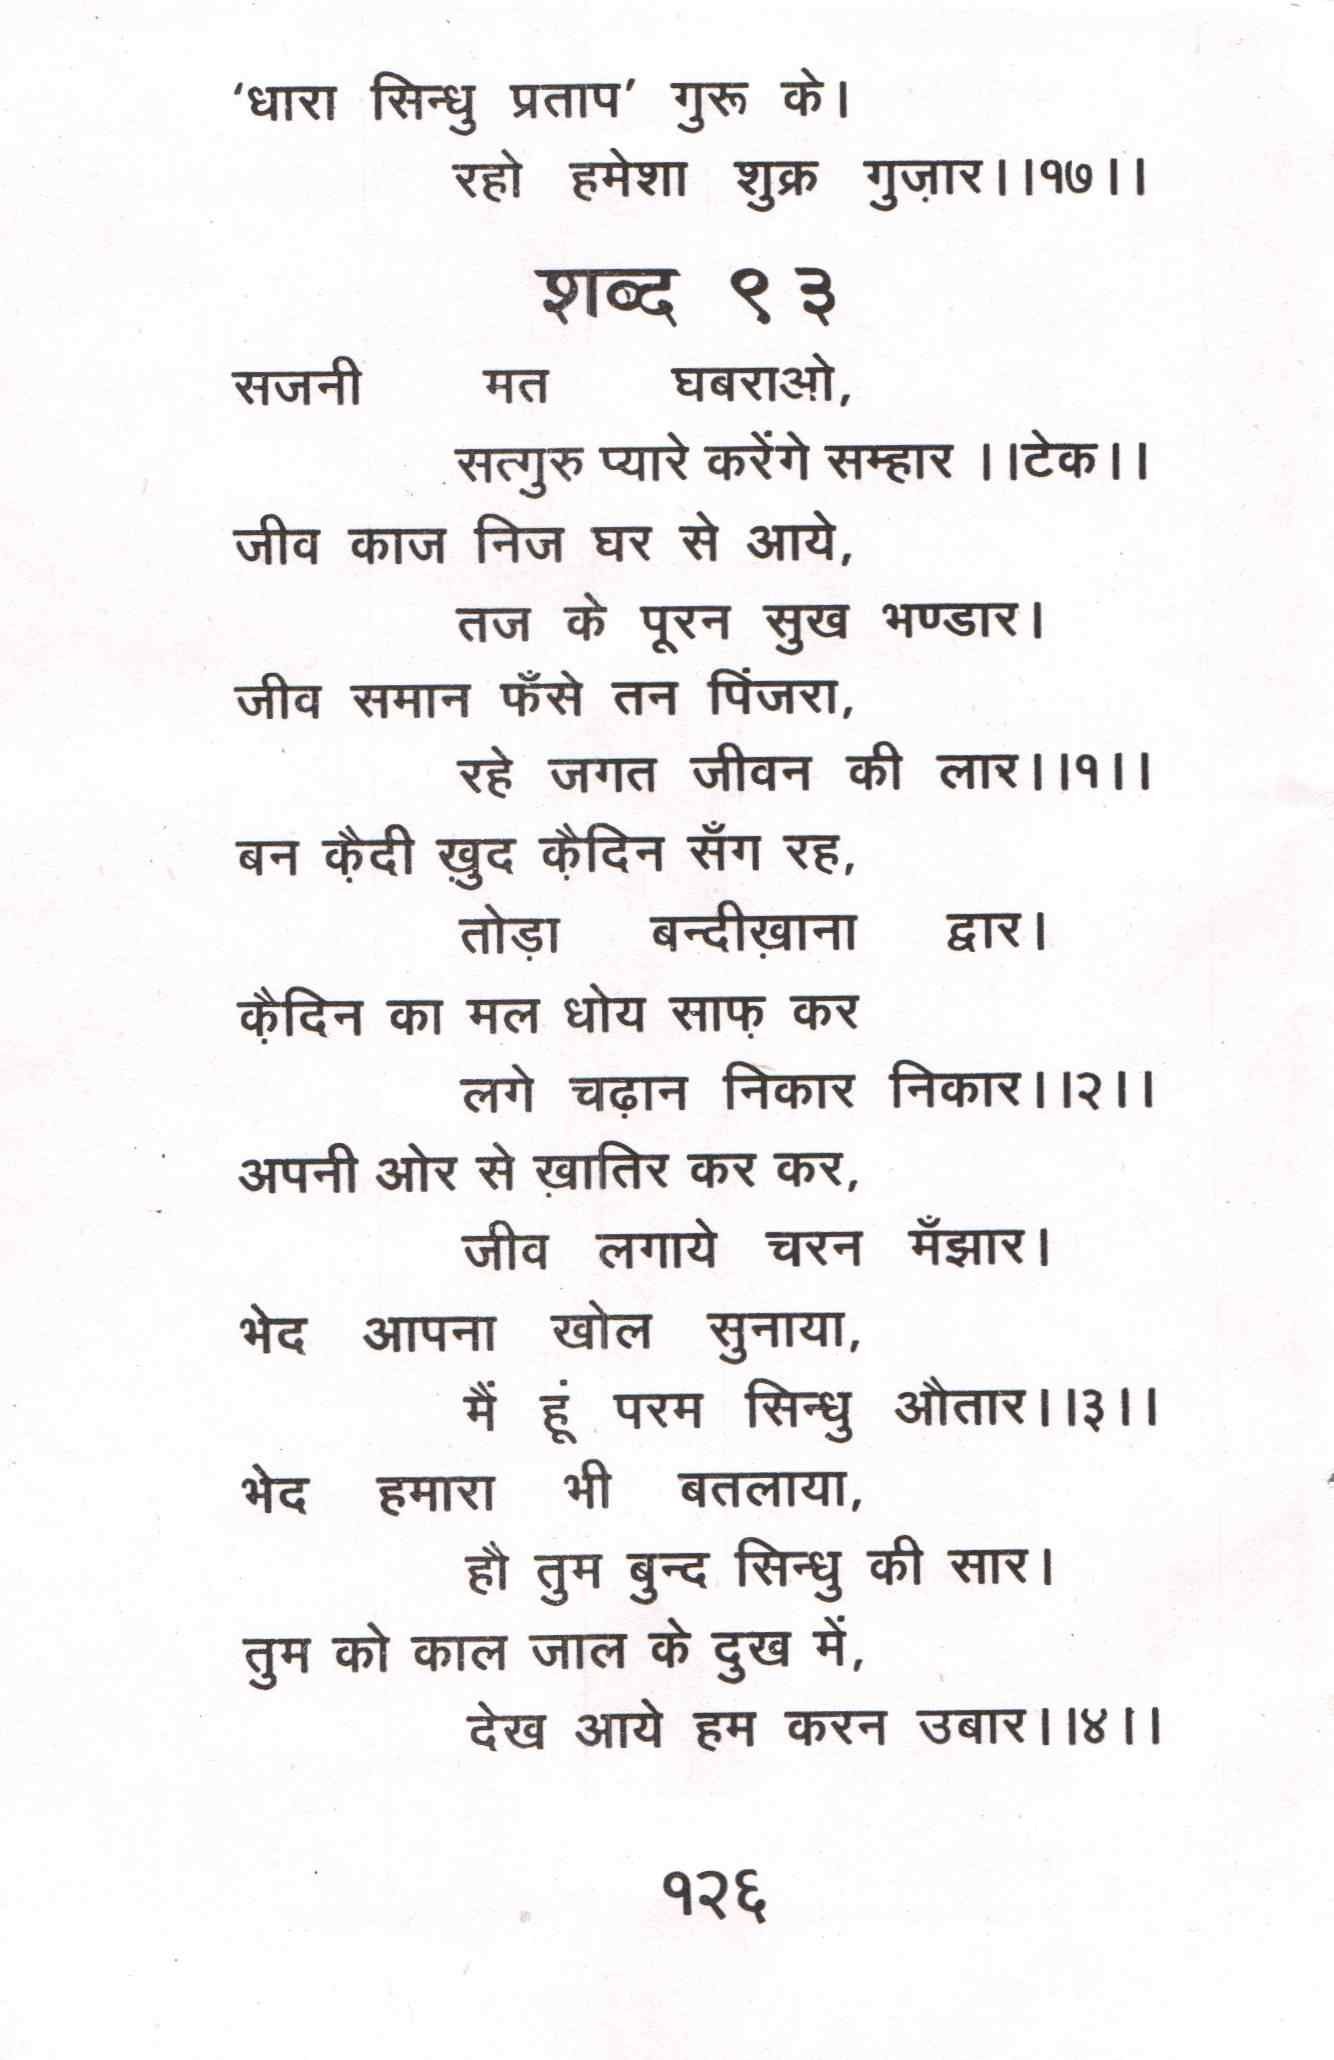 ‘धारा सिन्धु प्रताप’ गुरू के।
रहो हमेशा शुक्र गुज़ार।।१७।।
शब्द ९३
सजनी मत घबराओ,
सत्गुरु प्यारे करेंगे सम्हार ।।टेक।।
जीव काज निज घर से आये,
तज के पूरन सुख भण्डार।
जीव समान फँसे तन पिंजरा,
रहे जगत जीवन की लार।।१।।
बन क़ैदी ख़ुद क़ैदिन सँग रह,
तोड़ा बन्दीख़ाना द्वार।
क़ैदिन का मल धोय साफ़ कर
लगे चढ़ान निकार निकार।।२।।
अपनी ओर से ख़ातिर कर कर,
जीव लगाये चरन मँझार।
भेद आपना खोल सुनाया,
मैं हूं परम सिन्धु औतार।।३।।
भेद हमारा भी बतलाया,
हौ तुम बुन्द सिन्धु की सार।
तुम को काल जाल के दुख में,
देख आये हम करन उबार।।४।।
१२६